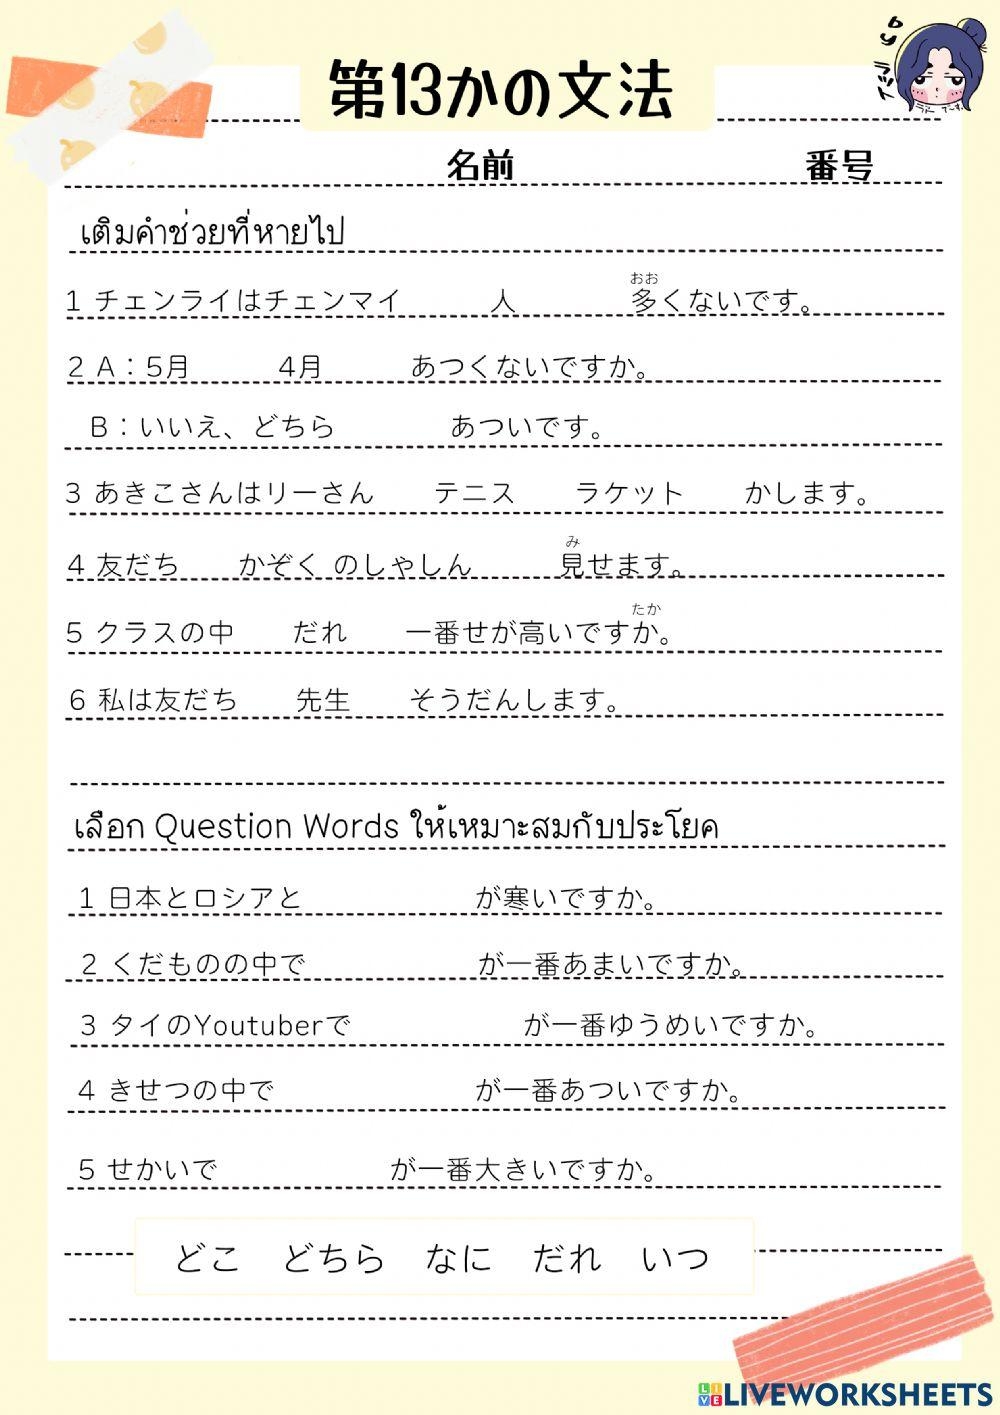 第13かの文法
by
ラット
名前 番号
เติมคำช่วยที่หายไป
おお
1 チェンライはチェンマイ 人 多くないです。
2 A：5月 4月 あつくないですか。
B：いいえ、どちら あついです。
3 あきこさんはリーさん テニス ラケット かします。
み
4 友だち かぞく のしゃしん 見せます。
たか
5 クラスの中 だれ 一番せが高いですか。
6 私は友だち 先生 そうだんします。
เลือก Question Words ให้เหมาะสมกับประโยค
1 日本とロシアと が寒いですか。
2 くだものの中で が一番あまいですか。
3 タイのYoutuberで が一番ゆうめいですか。
4 きせつの中で が一番あついですか。
5 せかいで が一番大きいですか。
どこ どちら なに だれ いつ
LIVE LIVEWORKSHEETS